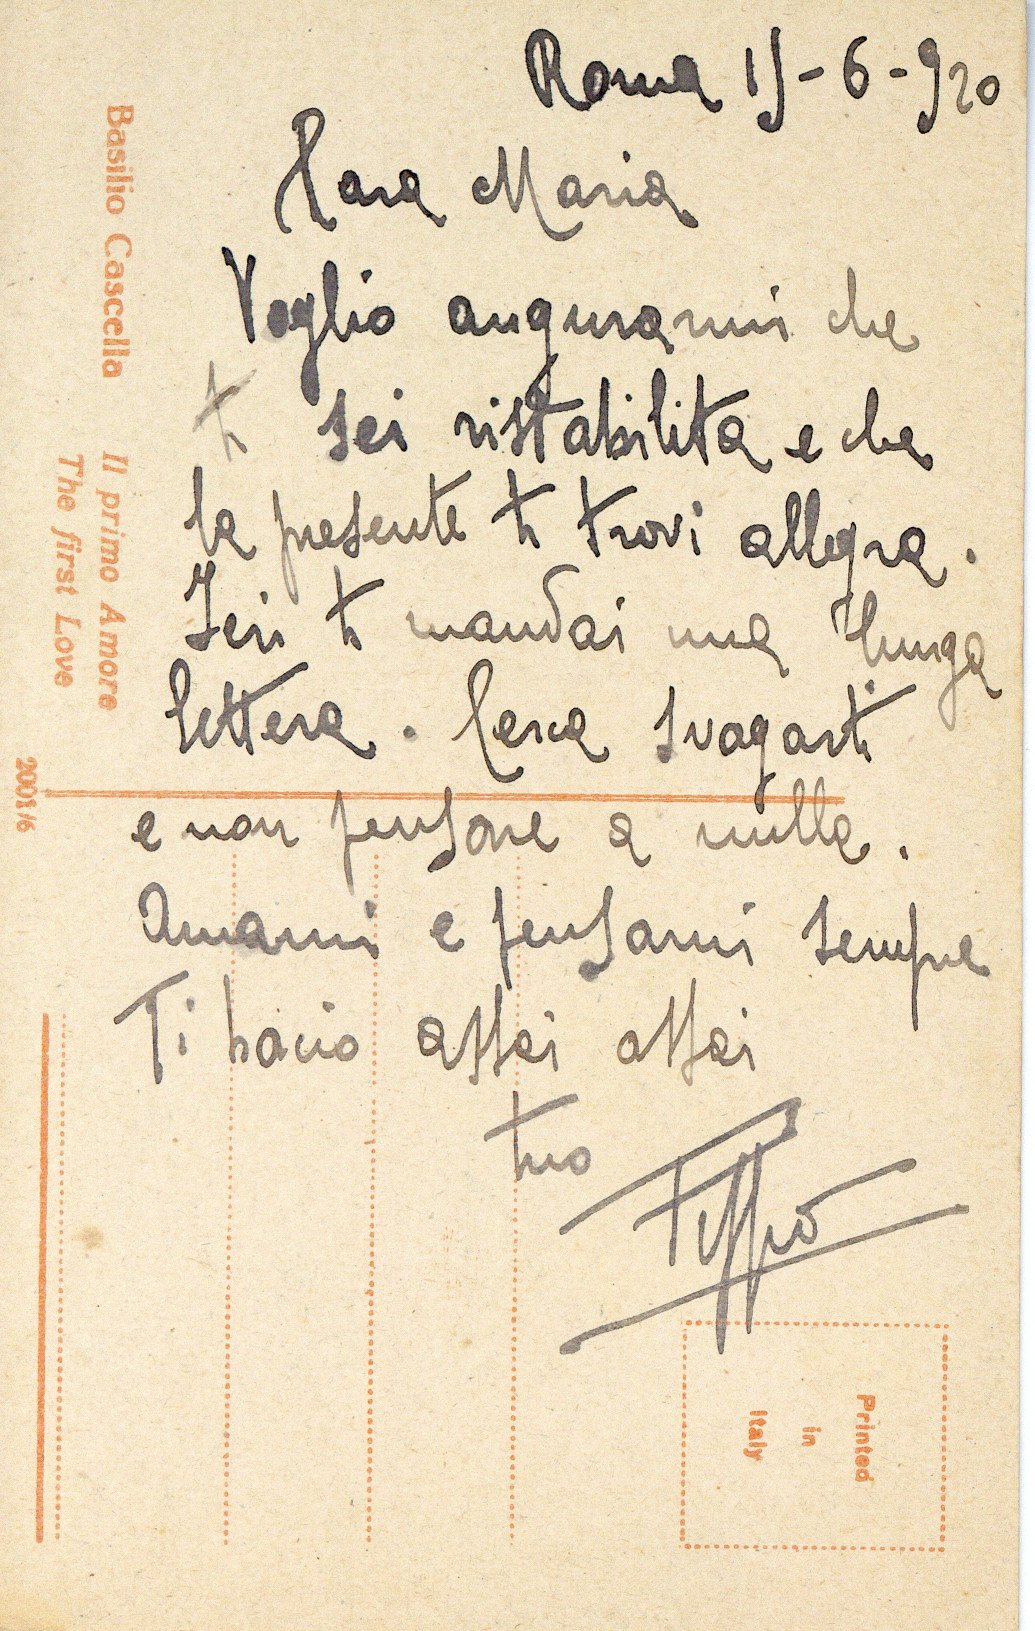 Roma 15-6-920
Cara Maria
Voglio augurarmi che
ti sei ristabilita e che
la presente ti trovi allegra.
Ieri ti mandai una lunga
lettera. Cerca svagarti
e non pensare a nulla.
Amami e pensami sempre
Ti bacio assai assai
tuo
Peppo
Basilio Cascella Il primo Amore
The first Love
2001/6
Printed
in
Italy